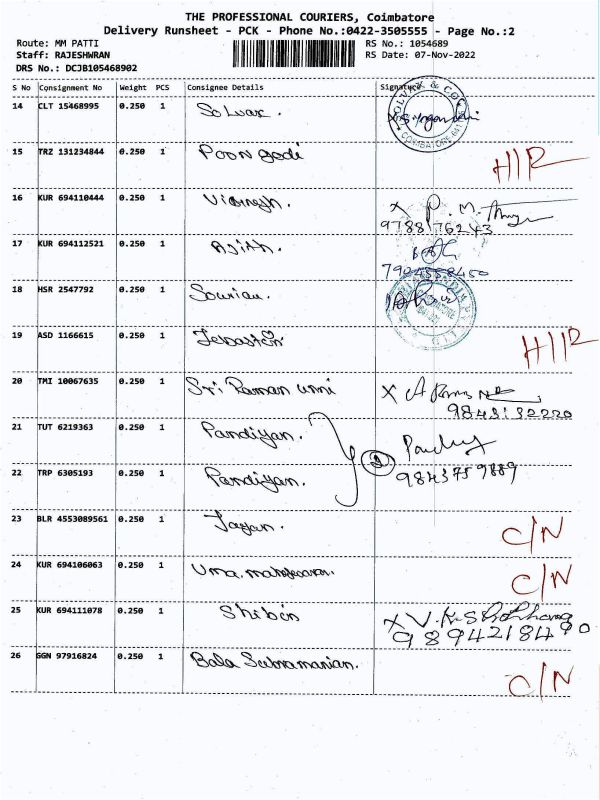 THE PROFESSIONAL COURIERS, Coimbatore
Delivery Runsheet - PCK - Phone No.:0422-3505555 - Page No.:2
Route: MM PATTI RS No.: 1054689
Staff: RAJESHWRAN RS Date: 07-Nov-2022
DRS No.: DCJB105468902
S No Consignment No Weight PCS Consignee Details Signature
14 CLT 15468995 0.250 1 Solvax.
15 TRZ 131234844 0.250 1 Poongodi H/R
16 KUR 694110444 0.250 1 Vignesh. X P. M.
9788176243
17 KUR 694112521 0.250 1 Ajith.
18 HSR 2547792 0.250 1
19 ASD 1166615 0.250 1 Jebastin H/R
20 TMI 10067635 0.250 1 Sri Raman unni X
9843132220
21 TUT 6219363 0.250 1 Pandiyan. 2
22 TRP 6305193 0.250 1 Pandiyan. 9843759889
23 BLR 4553089561 0.250 1 Jayan. C/N
24 KUR 694106063 0.250 1 Uma. C/N
25 KUR 694111078 0.250 1 Shibin X V.K.S
9894218490
26 GGN 97916824 0.250 1 Bala Subramanian. C/N